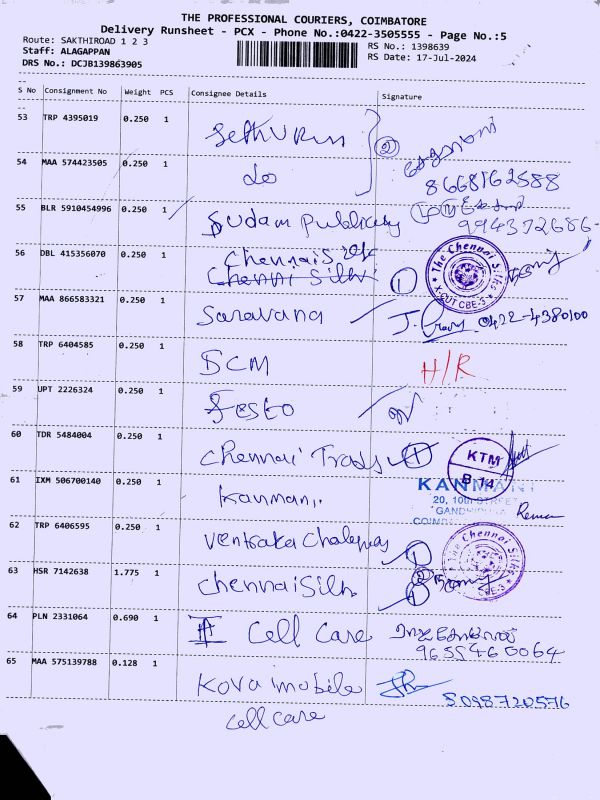 THE PROFESSIONAL COURIERS, COIMBATORE
Delivery Runsheet - PCX - Phone No.:0422-3505555 - Page No.:5
Route: SAKTHIROAD 1 2 3
Staff: ALAGAPPAN
DRS No.: DCJB139863905
RS No.: 1398639
RS Date: 17-Jul-2024
S No Consignment No Weight PCS Consignee Details Signature
53 TRP 4395019 0.250 1
2
54 MAA 574423505 0.250 1 do
8668162588
55 BLR 5910454996 0.250 1 Sudam Publicity
994372686-
56 DBL 415356070 0.250 1 Chennai Silk
Chennai Silk 1
The Chennai Silks
X-CUT CBE-5
57 MAA 866583321 0.250 1 Saravana 0422-4380100
58 TRP 6404585 0.250 1 SCM H/R
59 UPT 2226324 0.250 1 Festo
60 TDR 5484004 0.250 1 Chennai Trads 1
KTM
B-14
61 IXM 506700140 0.250 1 Kanmani
KANMANI
20, 10th STREET
62 TRP 6406595 0.250 1 1
The Chennai Silks
CBE-5
63 HSR 7142638 1.775 1 Chennai Silk 1
64 PLN 2331064 0.690 1 Cell Care
9655460064
65 MAA 575139788 0.128 1 Kova mobile
5098720576
cell care